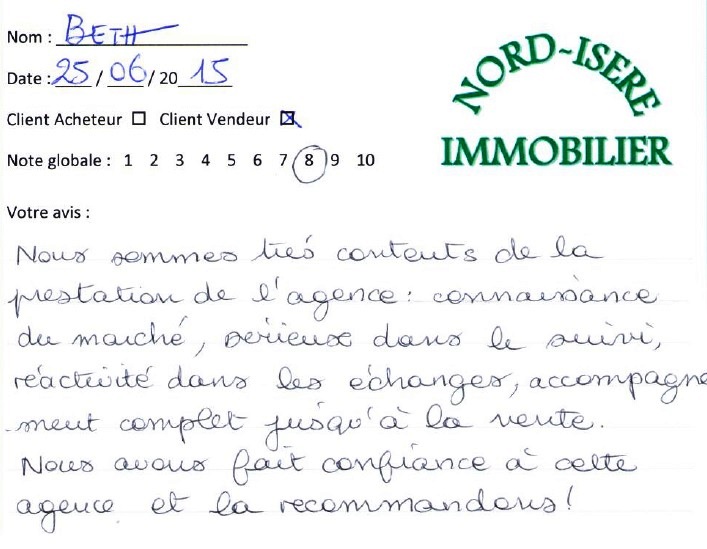 Nom : BETH
Date : 25 / 06 / 20 15
Client Acheteur ☐ Client Vendeur ☒
Note globale : 1 2 3 4 5 6 7 8 9 10
NORD-ISERE
IMMOBILIER
Votre avis :
Nous sommes très contents de la
prestation de l'agence : connaissance
du marché, sérieuse dans le suivi,
réactivité dans les échanges, accompagne
-ment complet jusqu'à la vente.
Nous avons fait confiance à cette
agence et la recommandons !